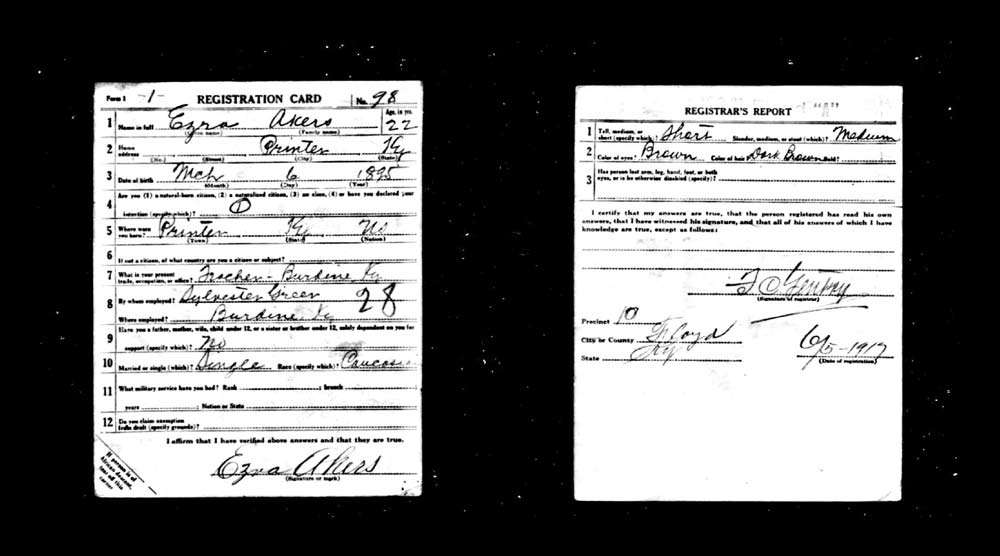 Form 1 -1- REGISTRATION CARD No. 98
1 Name in full Ezra Akers Age, in yrs. 22
(Given name) (Family name)
2 Home address Printer Ky
(No.) (Street) (City) (State)
3 Date of birth Mch 6 1895
(Month) (Day) (Year)
Are you (1) a natural-born citizen, (2) a naturalized citizen, (3) an alien, (4) or have you declared your
4 intention (specify which)? 1
5 Where were you born? Printer Ky
(Town) (State) (Nation)
6 If not a citizen, of what country are you a citizen or subject?
7 What is your present trade, occupation, or office? Burdine Ky
8 By whom employed? Sylvester Green 28
Where employed? Burdine Ky
Have you a father, mother, wife, child under 12, or a sister or brother under 12, solely dependent on you for
9 support (specify which)? No
10 Married or single (which)? Single Race (specify which)? Caucas
11 What military service have you had? Rank ; branch
years ; Nation or State
12 Do you claim exemption from draft (specify grounds)?
I affirm that I have verified above answers and that they are true.
Ezra Akers
(Signature or mark)
If person is of
African descent,
tear off this
corner
REGISTRAR'S REPORT
1 Tall, medium, or short (specify which)? Short Slender, medium, or stout (which)? Medium
2 Color of eyes? Brown Color of hair? Dark Brown Bald?
3 Has person lost arm, leg, hand, foot, or both eyes, or is he otherwise disabled (specify)?
I certify that my answers are true, that the person registered has read his own
answers, that I have witnessed his signature, and that all of his answers of which I have
knowledge are true, except as follows:
Gentry
(Signature of registrar)
Precinct 10
City or County Floyd
State Ky
6/5-1917
(Date of registration)